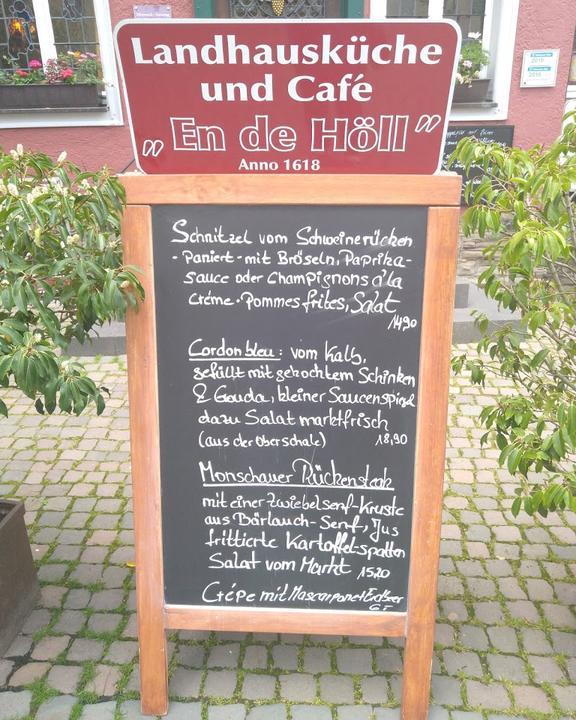 Landhausküche
und Café
„En de Höll"
Anno 1618
Schnitzel vom Schweinerücken
- Paniert - mit Bröseln, Paprika-
sauce oder Champignons a'la
Créme. Pommes frites, Salat
14,90
Cordon bleu: vom Kalb,
gefüllt mit gekochtem Schinken
& Gouda, kleiner Saucenspiegel
dazu Salat marktfrisch
(aus der Oberschale) 18,90
Monschauer Rückensteak
mit einer Zwiebelsenf-Kruste
aus Bärlauch-Senf, Jus
frittierte Kartoffel-spalten
Salat vom Markt 15,20
Crépe mit Mascarpone